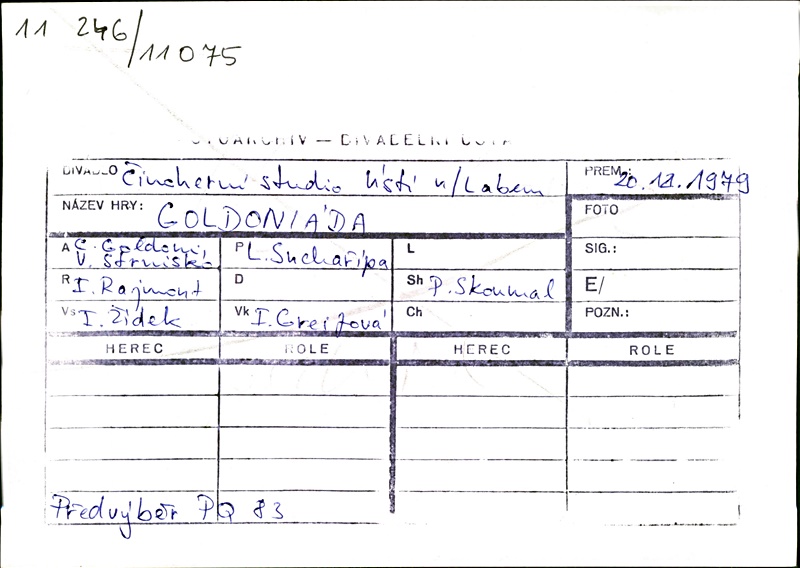 11 246/11075
DIVADLO Činoherní studio Ústí n/Labem
PREM.: 20.12.1979
NÁZEV HRY: GOLDONIÁDA
FOTO
A C. Goldoni,
V. Strnisko
P L. Suchařípa
L
SIG.:
R I. Rajmont
D
Sh P. Skoumal
E/
Vs I. Žídek
Vk I. Greifová
Ch
POZN.:
HEREC ROLE HEREC ROLE
Předvýběr PQ 83